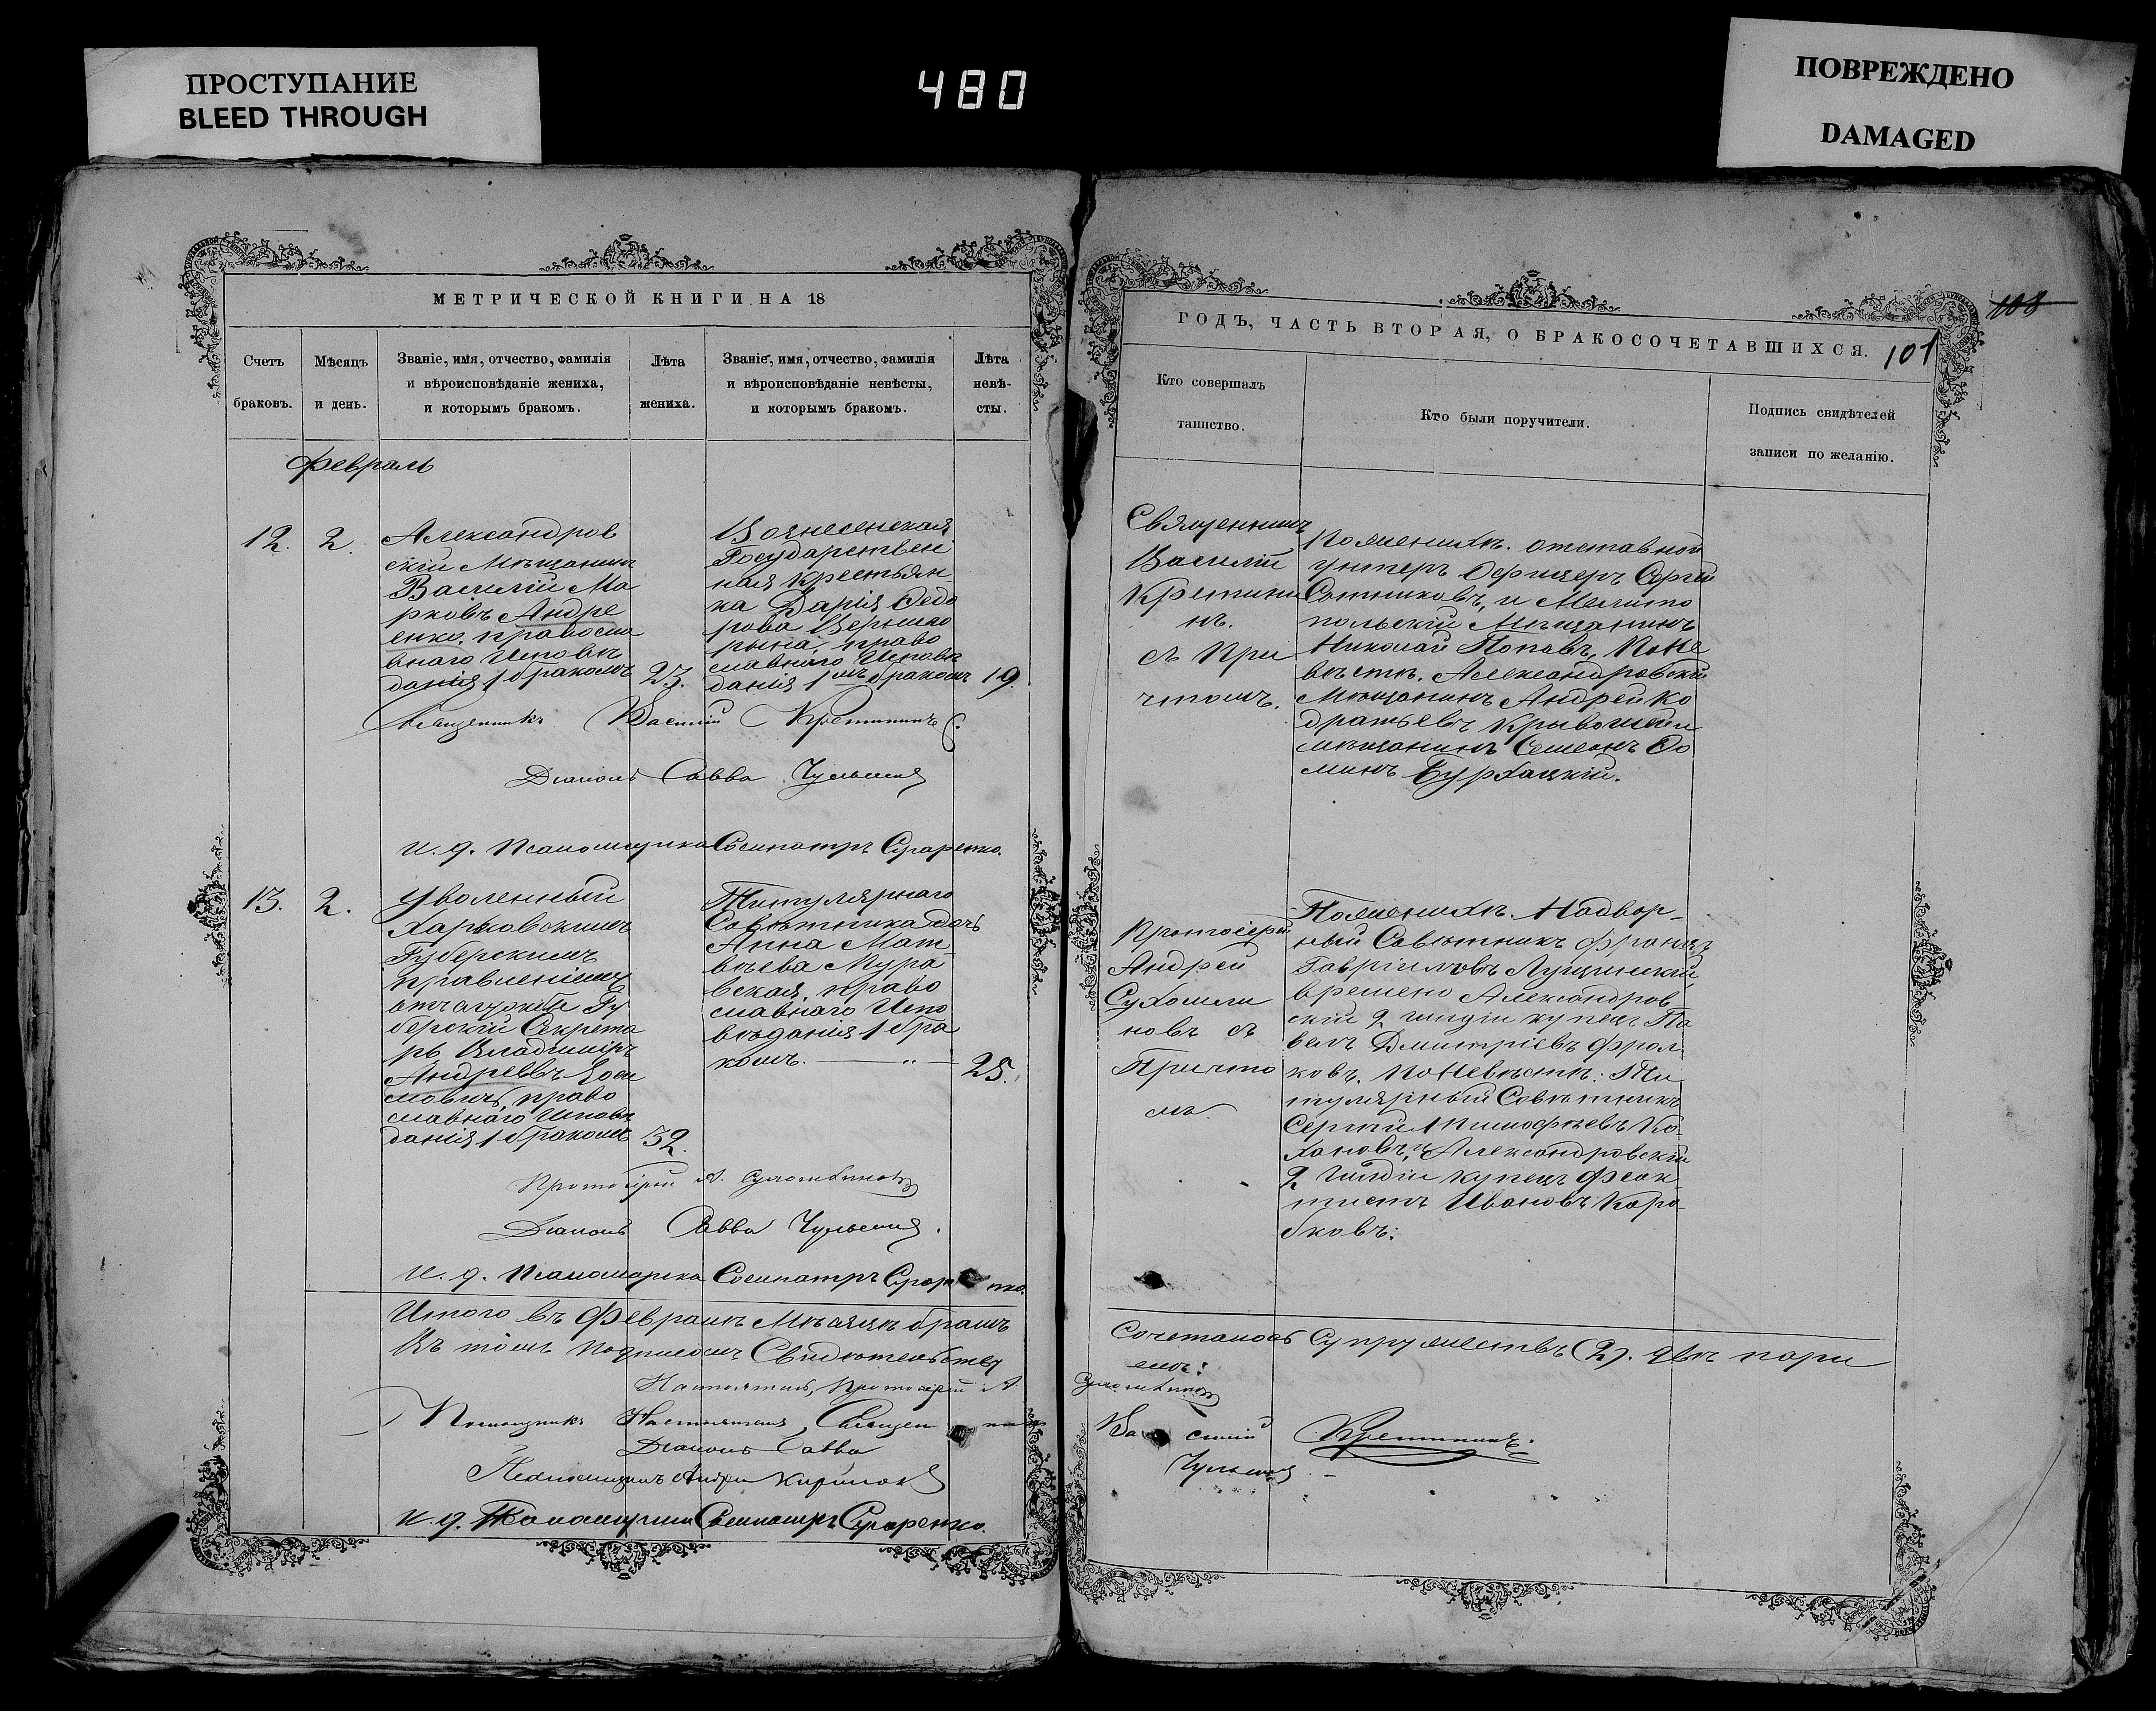 ПРОСТУПАНИЕ
BLEED THROUGH
480
ПОВРЕЖДЕНО
DAMAGED
МЕТРИЧЕСКОЙ КНИГИ НА 18
Счетъ
браковъ.
Мѣсяцъ
и день.
Званіе, имя, отчество, фамилія
и вѣроисповѣданіе жениха,
и которымъ бракомъ.
Лѣта
жениха.
Званіе, имя, отчество, фамилія
и вѣроисповѣданіе невѣсты,
и которымъ бракомъ.
Лѣта
невѣ-
сты.
февраль
12.
2.
Александров
скій Мѣщанинъ
Василій Ма
рковъ Андре
енко, правосла
внаго Исповѣ
данія 1 бракомъ
23.
Вознесенская
Государствен
ная Крестьян
ка Дарія Федо
рова
рына, право
славнаго Исповѣ
данія 1мъ бракомъ
19.
Священникъ Василій Кретининъ
Діаконъ Савва
и. д. Псаломщика Сосипатръ
13.
2.
Уволенный
Харьковскимъ
Губерскимъ
правленіемъ
отъ службы Гу
берскій Секрета
рь Владиміръ
Андреевъ
мовичъ, право
славнаго Исповѣ
данія 1 бракомъ
32.
Титулярнаго
Совѣтника дочь
Анна Мат
вѣева Мура
вская, право
славнаго Испо
вѣданія 1 бра
комъ.
25.
Протоіерей А. Сухомлиновъ
Діаконъ Савва
И. д. Сосипатръ
Итого въ Февралѣ Мѣсяцѣ бракъ
Въ томъ подписомъ Свидѣтельству
Настоятель, Протоіерей А.
Помощникъ Настоятеля, Священ
Діаконъ Савва
Псаломщикъ Андрей
и. д. Сосипатръ
108
ГОДЪ, ЧАСТЬ ВТОРАЯ, О БРАКОСОЧЕТАВШИХСЯ.
101
Кто совершалъ
таинство.
Кто были поручители.
Подпись свидѣтелей
записи по желанію.
Священникъ
Василій
Кретини
нъ.
съ При
чтомъ.
По женихѣ. отставной
унтеръ Офицеръ Сергей
Сотниковъ, и Мелито
польскій Мѣщанинъ
Николай Поповъ, По Не
вѣстѣ. Александровскій
Мѣщанинъ Андрей Ко
дратьевъ
мѣщанинъ Семенъ Фо
минъ Бурхацкій.
Протоіерей
Андрей
Сухомли
новъ съ
Причто
мъ
По женихѣ. Надвор-
ный Совѣтникъ Францъ
Гавріиловъ
времено Александров
скій 2 гилдіи купецъ Па
велъ Дмитріевъ Фрол
ковъ. По Невѣстѣ: Ти
тулярный Совѣтникъ
Сергей Тимофѣевъ Ко-
хановъ, и Александровскій
2 гилдіи купецъ Феок
тистъ Ивановъ Коро-
бковъ:
Сочеталось Супружествъ (2). двѣ пары
емъ:
Сухомлиновъ
Ва силій Кретининъ.